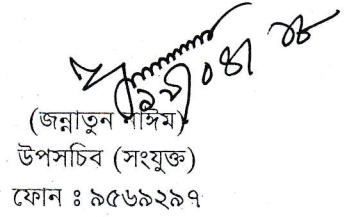 (জন্নাতুন নাঈম)
উপসচিব (সংযুক্ত)
ফোন ঃ ৯৫৬৯২৯৭